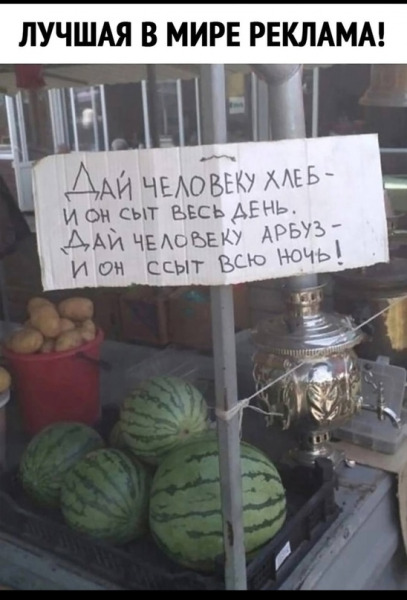 ЛУЧШАЯ В МИРЕ РЕКЛАМА!
ДАЙ ЧЕЛОВЕКУ ХЛЕБ -
И ОН СЫТ ВЕСЬ ДЕНЬ.
ДАЙ ЧЕЛОВЕКУ АРБУЗ -
И ОН ССЫТ ВСЮ НОЧЬ!